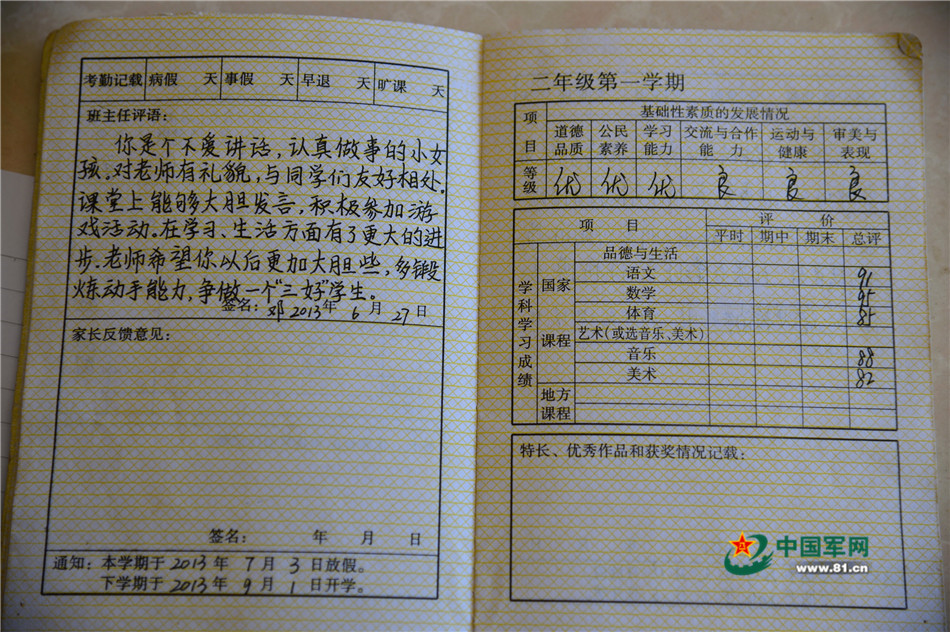 考勤记载 病假 天 事假 天 早退 天 旷课 天
班主任评语:
你是个不爱讲话,认真做事的小女
孩.对老师有礼貌,与同学们友好相处.
课堂上能够大胆发言,积极参加游
戏活动.在学习、生活方面有了更大的进
步.老师希望你以后更加大胆些,多锻
炼动手能力,争做一个"三好"学生。
签名: 邓 2013年 6 月 27 日
家长反馈意见:
签名: 年 月 日
通知: 本学期于 2013 年 7 月 3 日放假。
下学期于 2013 年 9 月 1 日开学。
二年级第一学期
项目 基础性素质的发展情况
道德品质 公民素养 学习能力 交流与合作能力 运动与健康 审美与表现
等级 优 优 优 良 良 良
项 目 评 价
平时 期中 期末 总评
学科学习成绩
国家课程
品德与生活
语文 91
数学 95
体育 85
艺术(或选音乐、美术)
音乐 88
美术 82
地方课程
特长、优秀作品和获奖情况记载:
中国军网
www.81.cn